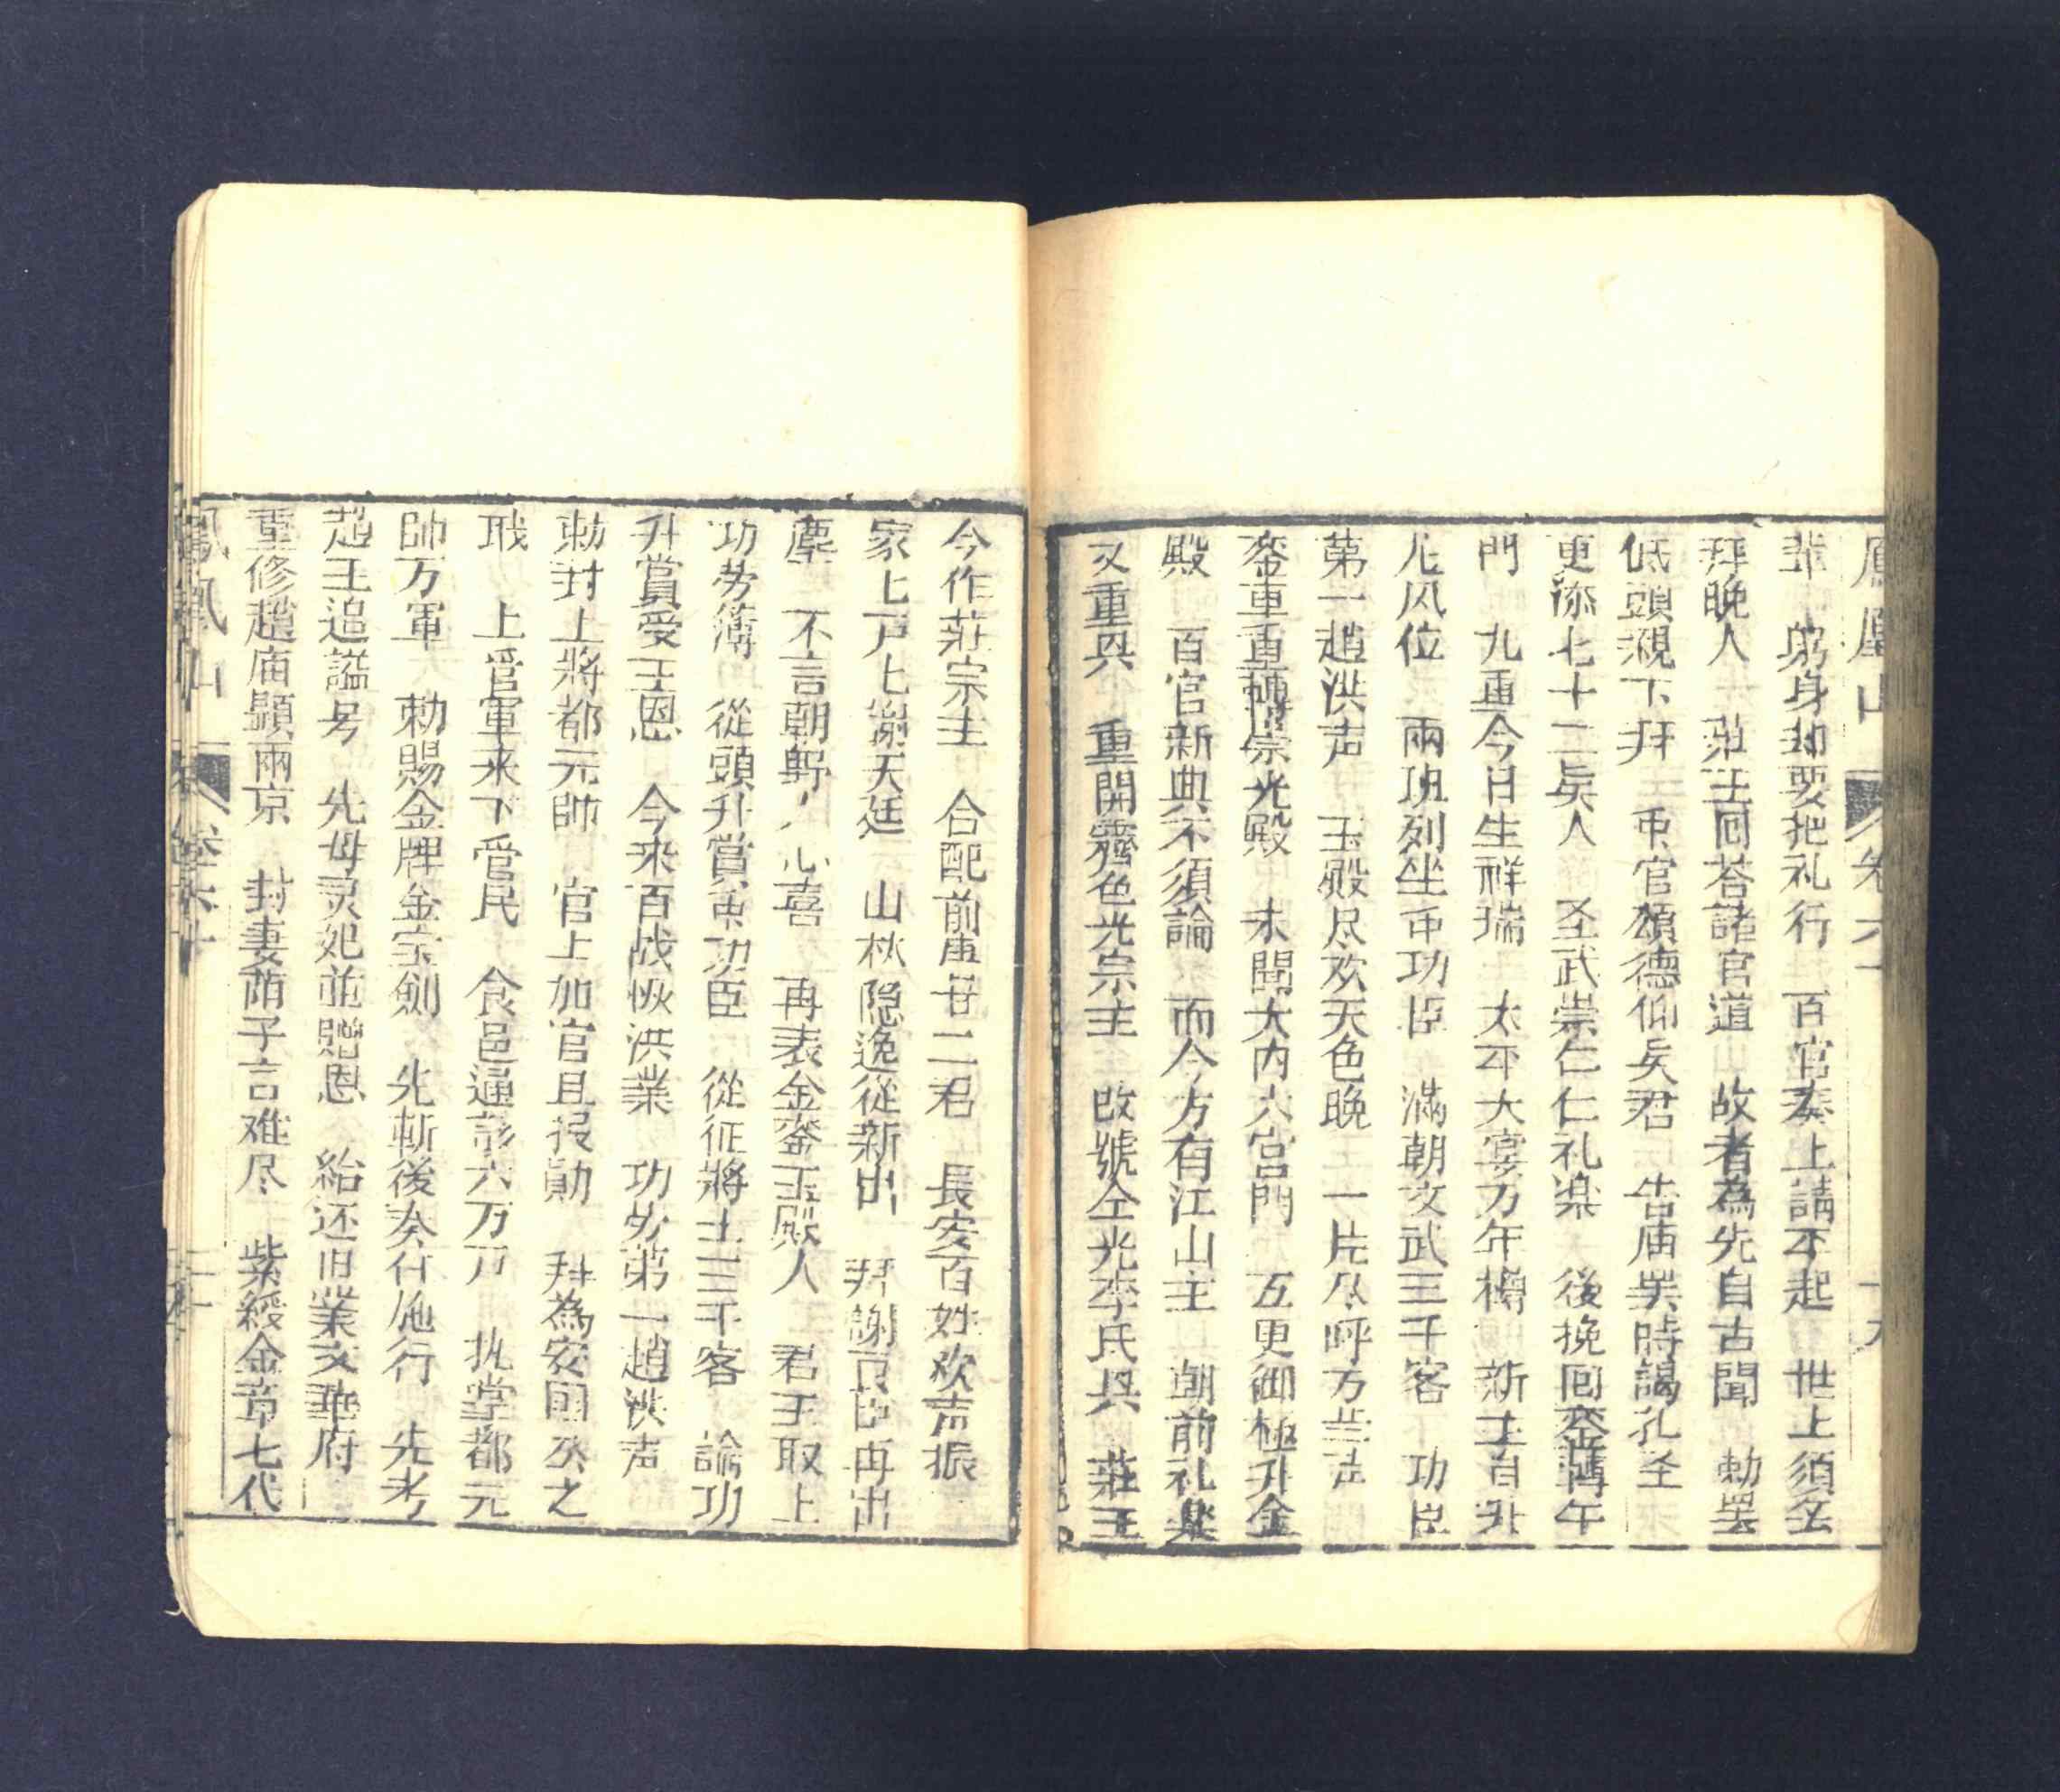 鳳凰山 卷六 十九
輩 躬身却要把礼行 百官奏上請不起 世上須多
拜晚人 莊王回荅諸官道 故者為先自古聞 勅罢
低頭親下拜 衆官頌德仰矣君 告庙畢時謁孔圣
更添七十二矣人 圣武崇仁仁礼楽 後挽回銮薄午
門 九重今日生祥瑞 太平大宴万年樽 新主自升
尨风位 兩班列坐衆功臣 滿朝文武三千客 功臣
第一趙洪声 玉殿尽欢天色晚 一片尽呼万岁声
銮車重轉宗光殿 未開大内六宫門 五更御極升金
殿 百官新典不須論 而今方有江山主 朝前礼楽
又重兴 重開霽色光宗主 改號仝光李氏兴 莊王
今作莊宗主 合配前唐廿二君 長安百姓欢声振
家上戸上謝天廷 山林隐逸從新出 拜謝君臣再出
塵 不言朝野人心喜 再表金銮玉殿人 君王取上
功劳薄 從頭升賞衆功臣 從征將士三千客 論功
升賞受王恩 今来百战恢洪業 功劳第一趙洪声
勅封上將都元帥 官上加官且报勛 拜為安國丞之
戝 上管軍来下管民 食邑通該六万戸 执掌都元
帥万軍 勅賜金牌金宝劍 先斬後奏任施行 先考
趙王追謚号 先母灵妃並贈恩 給还旧業文華府
重修趙庙顯兩京 封妻䕃子言难尽 紫綬金章七代
鳳凰山 卷六 二十